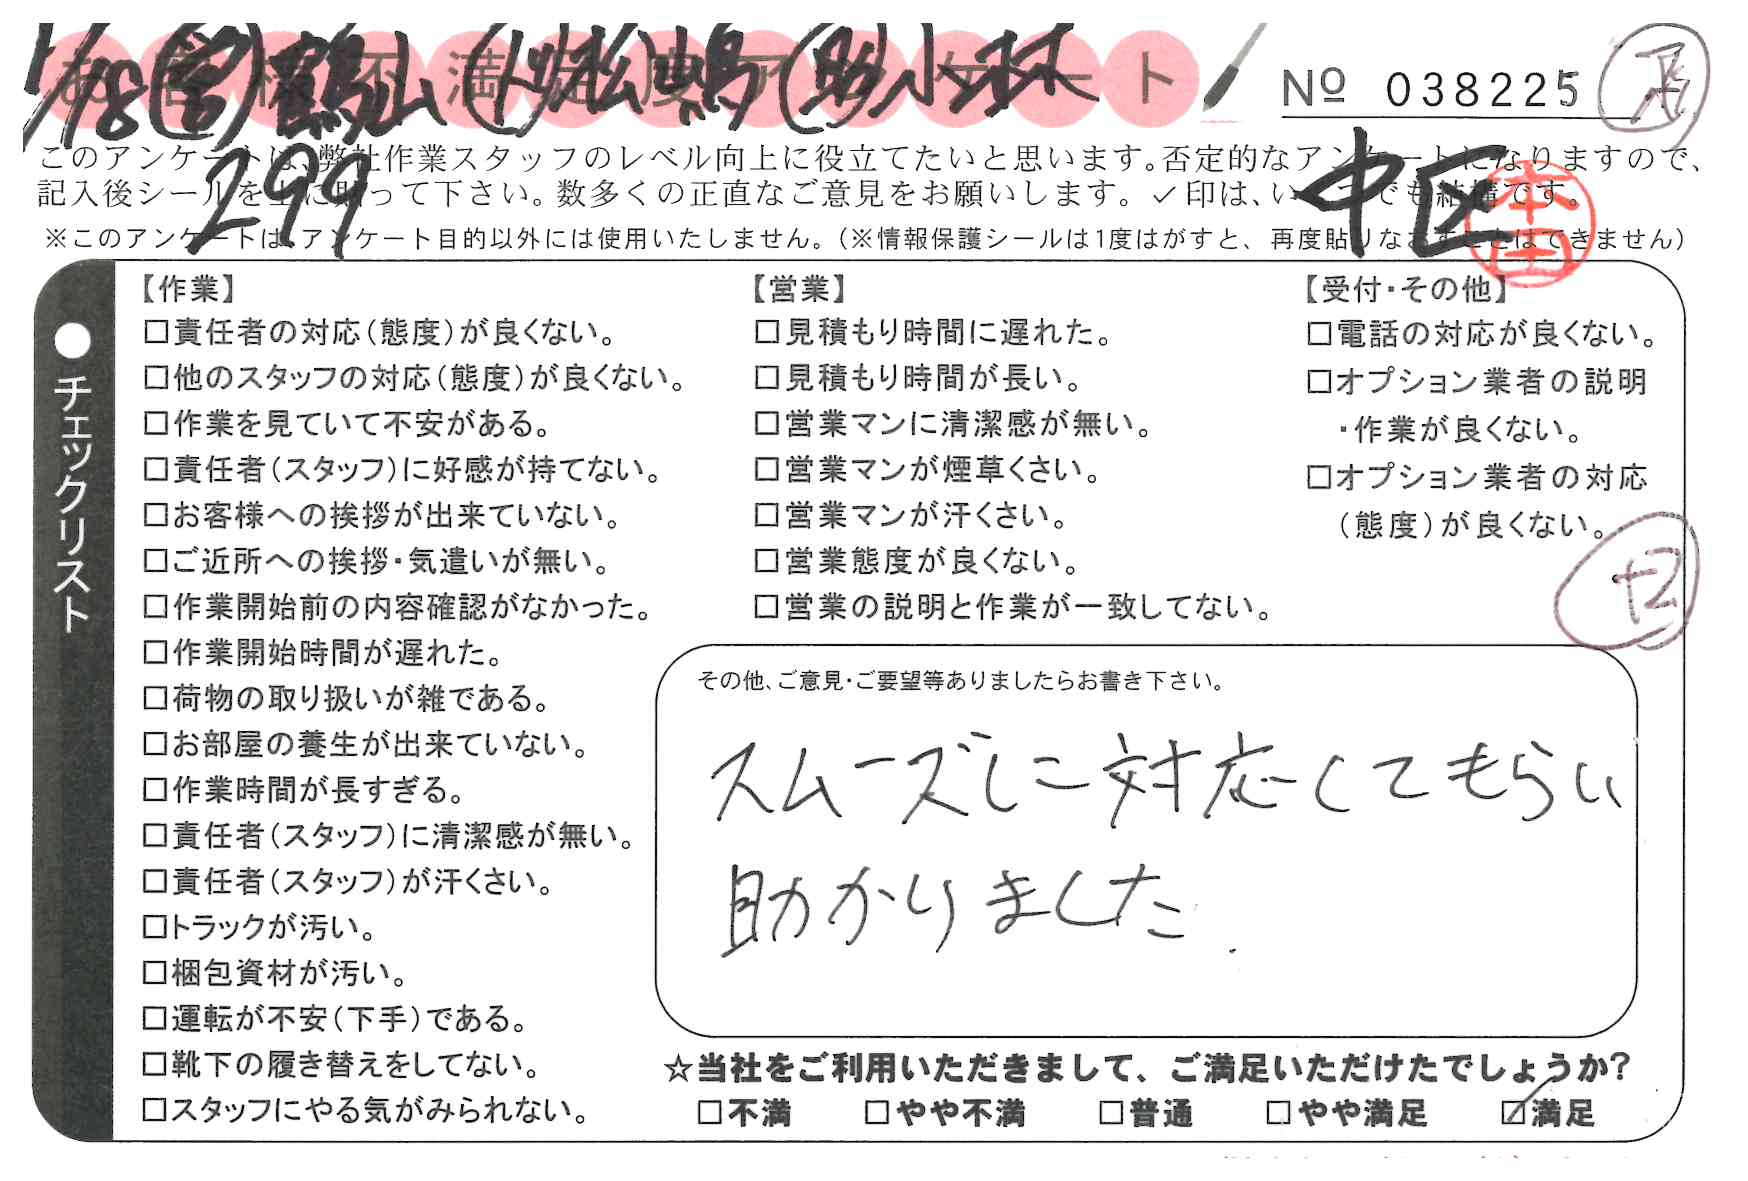 お客様不満足度アンケート
1/18 (営)亀山 (ト)松嶋 (助)小玉 木村
No 038225
299
中区
本田
このアンケートは、弊社作業スタッフのレベル向上に役立てたいと思います。否定的なアンケートになりますので、
記入後シールを上に貼って下さい。数多くの正直なご意見をお願いします。✓印は、いくつでも結構です。
※このアンケートは、アンケート目的以外には使用いたしません。(※情報保護シールは1度はがすと、再度貼りなおすことはできません)
●チェックリスト
【作業】
□責任者の対応(態度)が良くない。
□他のスタッフの対応(態度)が良くない。
□作業を見ていて不安がある。
□責任者(スタッフ)に好感が持てない。
□お客様への挨拶が出来ていない。
□ご近所への挨拶・気遣いが無い。
□作業開始前の内容確認がなかった。
□作業開始時間が遅れた。
□荷物の取り扱いが雑である。
□お部屋の養生が出来ていない。
□作業時間が長すぎる。
□責任者(スタッフ)に清潔感が無い。
□責任者(スタッフ)が汗くさい。
□トラックが汚い。
□梱包資材が汚い。
□運転が不安(下手)である。
□靴下の履き替えをしてない。
□スタッフにやる気がみられない。
【営業】
□見積もり時間に遅れた。
□見積もり時間が長い。
□営業マンに清潔感が無い。
□営業マンが煙草くさい。
□営業マンが汗くさい。
□営業態度が良くない。
□営業の説明と作業が一致してない。
【受付・その他】
□電話の対応が良くない。
□オプション業者の説明
・作業が良くない。
□オプション業者の対応
(態度)が良くない。
その他、ご意見・ご要望等ありましたらお書き下さい。
スムーズに対応してもらい
助かりました.
☆当社をご利用いただきまして、ご満足いただけたでしょうか?
□不満 □やや不満 □普通 □やや満足 ☑満足